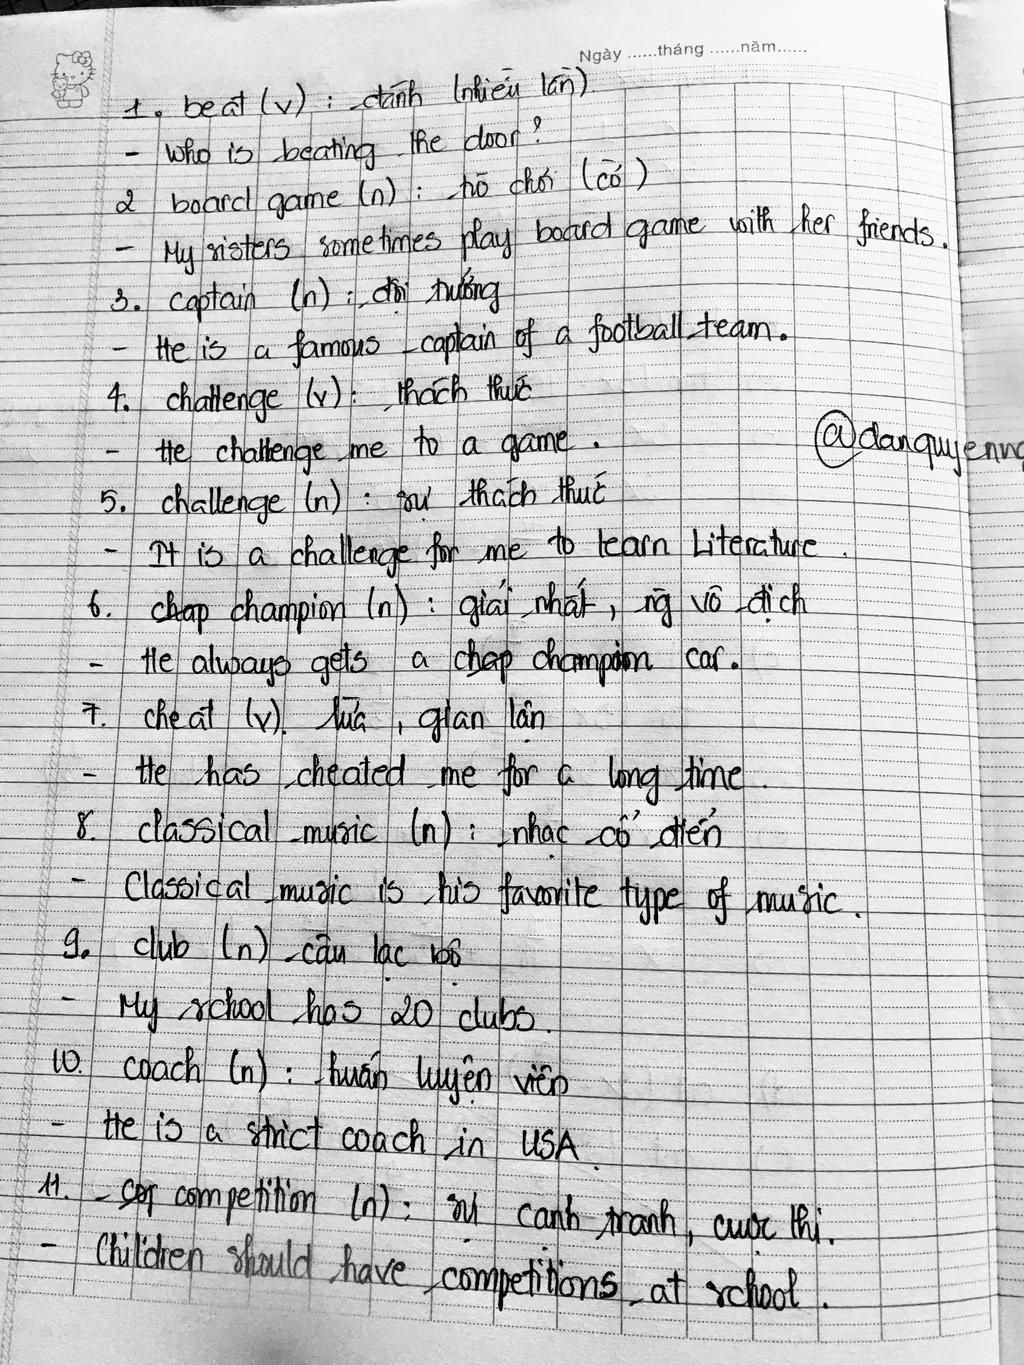 Ngày ......tháng ......năm......
1. beat (v) : đánh (nhiều lần)
- Who is beating the door?
2 board game (n) : trò chơi (cờ)
- My sisters sometimes play board game with her friends.
3. captain (n) : đội trưởng
- He is a famous captain of a football team.
4. challenge (v) : thách thức
- He challenge me to a game.
@danquyenng
5. challenge (n) : sự thách thức
- It is a challenge for me to learn Literature.
6. chap champion (n) : giải nhất, ng vô địch
- He always gets a chap champion car.
7. cheat (v). lừa, gian lận
- He has cheated me for a long time.
8. classical music (n) : nhạc cổ điển
- Classical music is his favorite type of music.
9. club (n) câu lạc bộ
- My school has 20 clubs.
10. coach (n) : huấn luyện viên
- He is a strict coach in USA.
11. competition (n) : sự cạnh tranh, cuộc thi.
- Children should have competitions at school.